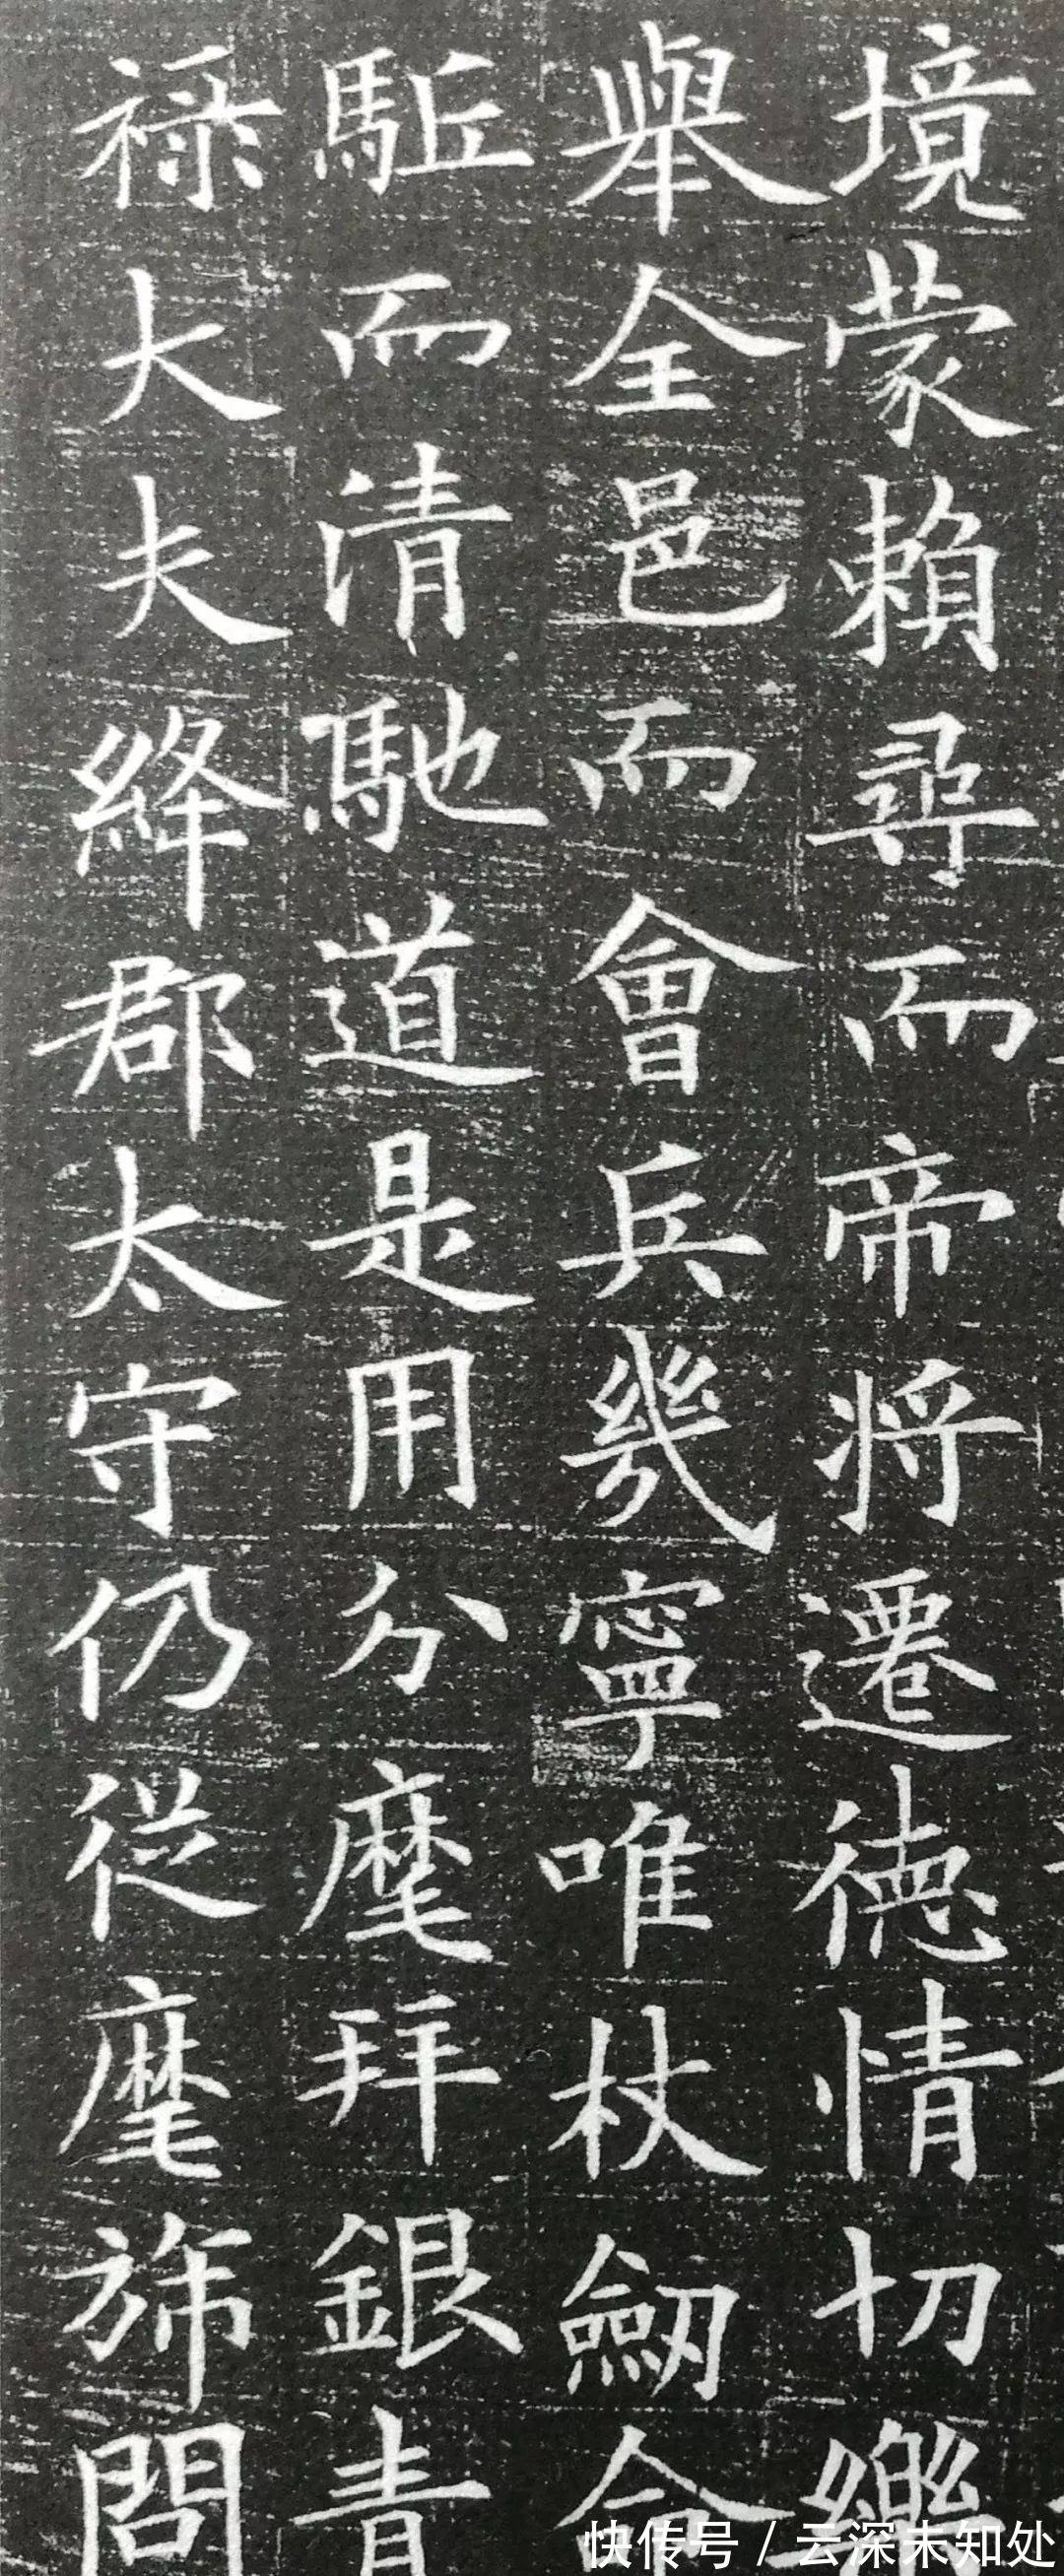 境蒙賴尋而帝将遷德情切
舉全邑而會兵幾寧唯杖劒
駈而清馳道是用分麾拜銀青
禄大夫絳郡太守仍從麾旆問
快传号 / 云深未知处